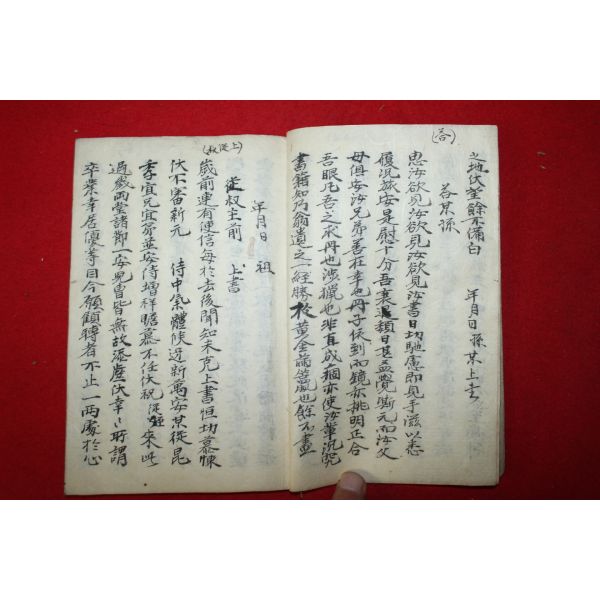 (答)
之地伏望餘不備白 年月日孫某上書
答某孫
思汝欲見汝欲見汝欲見汝書日切馳慮卽見手滋以悉
履況旅安是慰十分吾衰退類日甚益覺嘶元而汝父
母俱安汝兄弟善在幸也冊子依到而鏡亦挑明正合
吾眼凡吾之求冊也涉獵也非直成癖亦使汝輩沉翫
書籍知乃翁遺之一經勝於黃金滿籯也餘不盡
年月日 祖
(上從叔)
從叔主前 上書
歲前連有便信每於去後聞知未克上書恒切慕悚
伏不審新元 侍中氣體候迓新萬安某從昆
季宜兄宜弟並安侍增祥瞻慕不任伏祝從姪來此
過歲兩堂諸節一安兒曹皆無故滾產伏幸幸所謂
卒業幸居優等目今願顧轉者不止一兩處於心